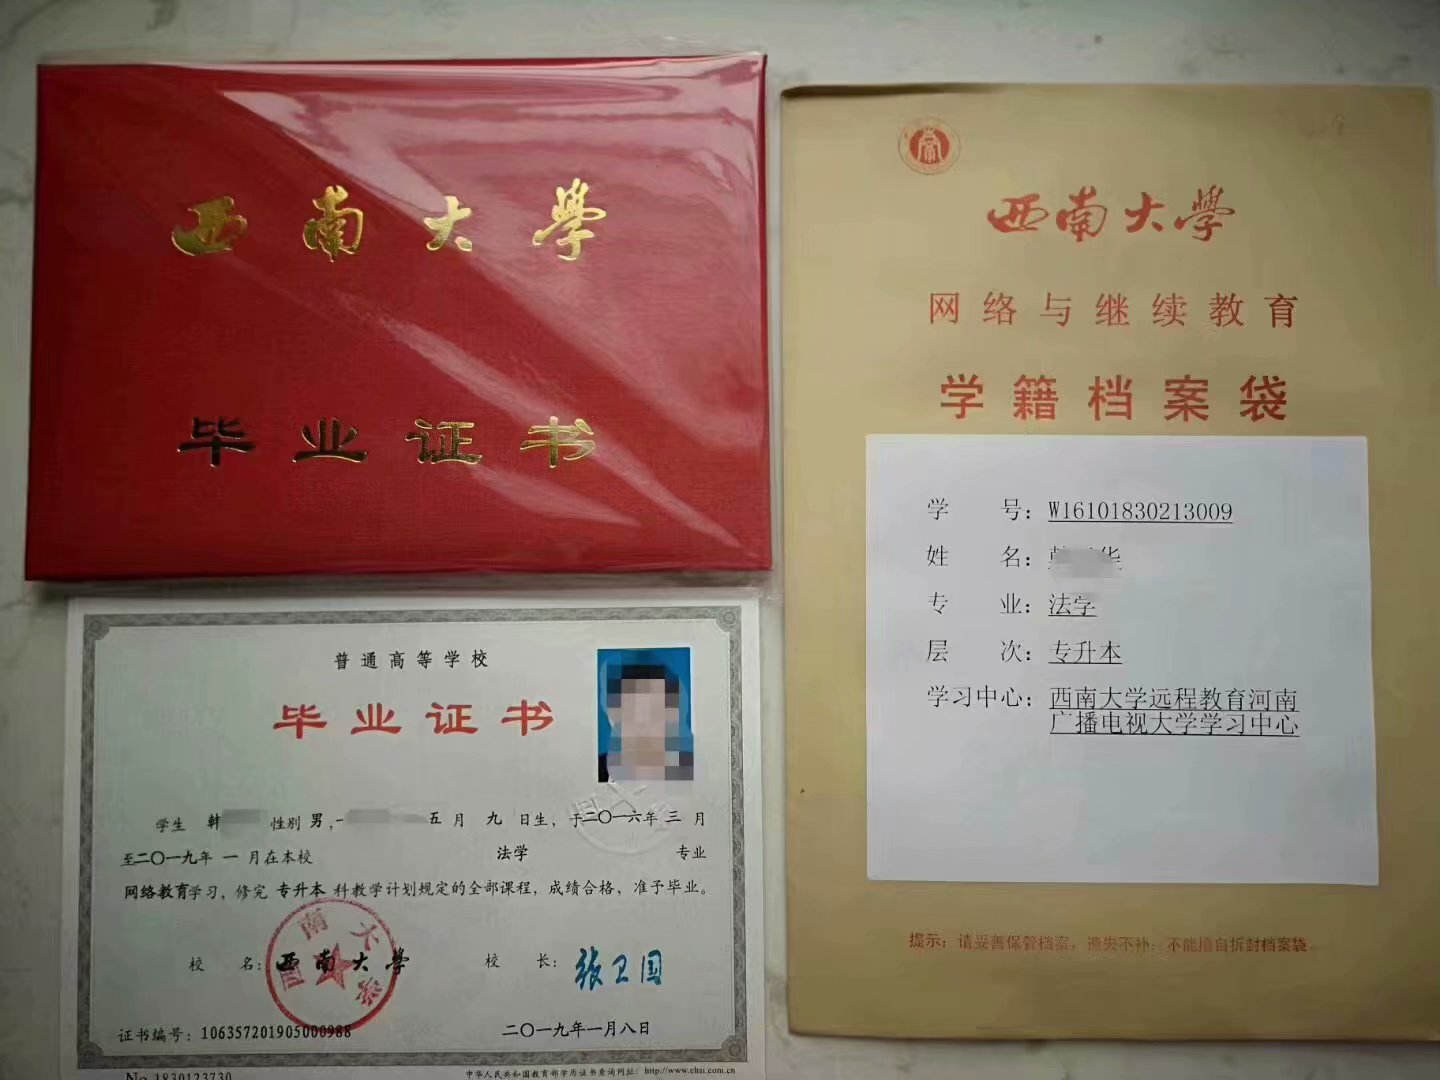 西南大学
毕业证书
普通高等学校
毕业证书
学生 韩 性别 男,一 五 月 九 日生,于二〇一六年 三 月
至二〇一九年 一 月在本校 法学 专业
网络教育学习,修完 专升本 科教学计划规定的全部课程,成绩合格,准予毕业。
校 名: 西南大学 校 长: 张卫国
西南大学
证书编号: 106357201905000988 二〇一九年一月八日
No.1830123730 中华人民共和国教育部学历证书查询网址: http://www.chsi.com.cn
西南大学
网络与继续教育
学籍档案袋
学 号: W16101830213009
姓 名: 华
专 业: 法学
层 次: 专升本
学习中心: 西南大学远程教育河南
广播电视大学学习中心
提示: 请妥善保管档案, 遗失不补; 不能擅自拆封档案袋。